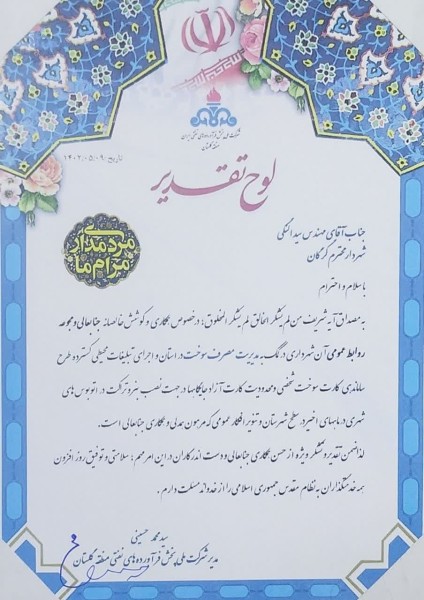 شرکت ملی پخش فرآورده‌های نفتی ایران
منطقه گلستان
تاریخ: ۱۴۰۲/۰۵/۰۹
لوح تقدیر
مردمداری
مرام ما
جناب آقای مهندس سید النگی
شهردار محترم گرگان
با سلام و احترام
به مصداق آیه شریف من لم یشکر الخالق لم یشکر المخلوق؛ در خصوص همکاری و کوشش خالصانه جنابعالی و مجموعه
روابط عمومی آن شهرداری در کمک به مدیریت مصرف سوخت در استان و اجرای تبلیغات محیطی گسترده طرح
ساماندهی کارت سوخت شخصی و محدودیت کارت آزاد جایگاهها در جهت نصب بنر و تراکت در اتوبوس های
شهری در ماههای اخیر در سطح شهرستان و تنویر افکار عمومی که مرهون همدلی و همکاری جنابعالی است.
لذا ضمن تقدیر و تشکر ویژه از حسن همکاری جنابعالی و دست اندرکاران در این امر مهم؛ سلامتی و توفیق روز افزون
همه خدمتگذاران به نظام مقدس جمهوری اسلامی را از خداوند مسئلت دارم.
سید محمد حسینی
مدیر شرکت ملی پخش فرآورده های نفتی منطقه گلستان